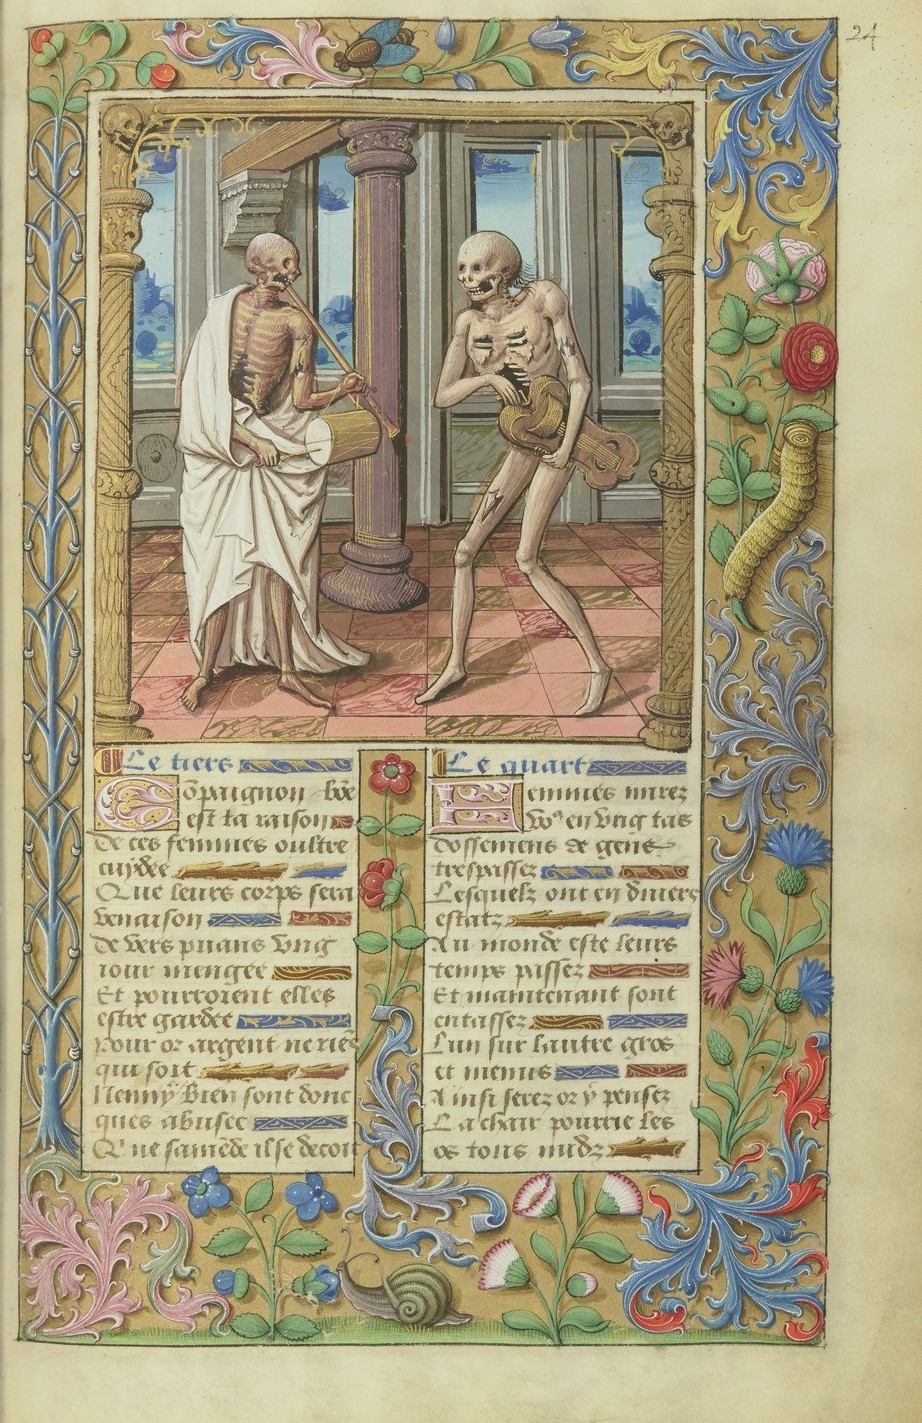 24
Le tiers
Cõpaignon bõe
est ta raison
de ces femmes oultre
cuydee
Que leurs corps sera
venaison
de vers puans vng
iour mengee
Et pourroient elles
estre gardee
Pour or argent ne riẽs
qui soit
Nenny bien sont donc
ques abusee
Que samẽde il se decoit
Le quart
Femmes mirez
en vng tas
dossemens de gens
trespassez
Lesquelz ont en diuers
estatz
Au monde este leurs
temps passez
Et maintenant sont
entassez
Lun sur lautre gros
et menus
Ainsi serez or y pensez
La chair pourrie les
os tous nudz